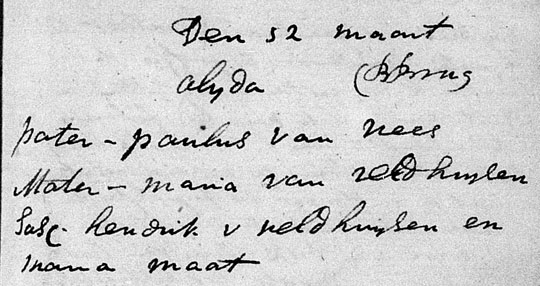 Den 12 maart
alyda
pater - paulus van Rees
Mater - maria van veldhuysen
Susc. hendrik v veldhuysen en
maria maat